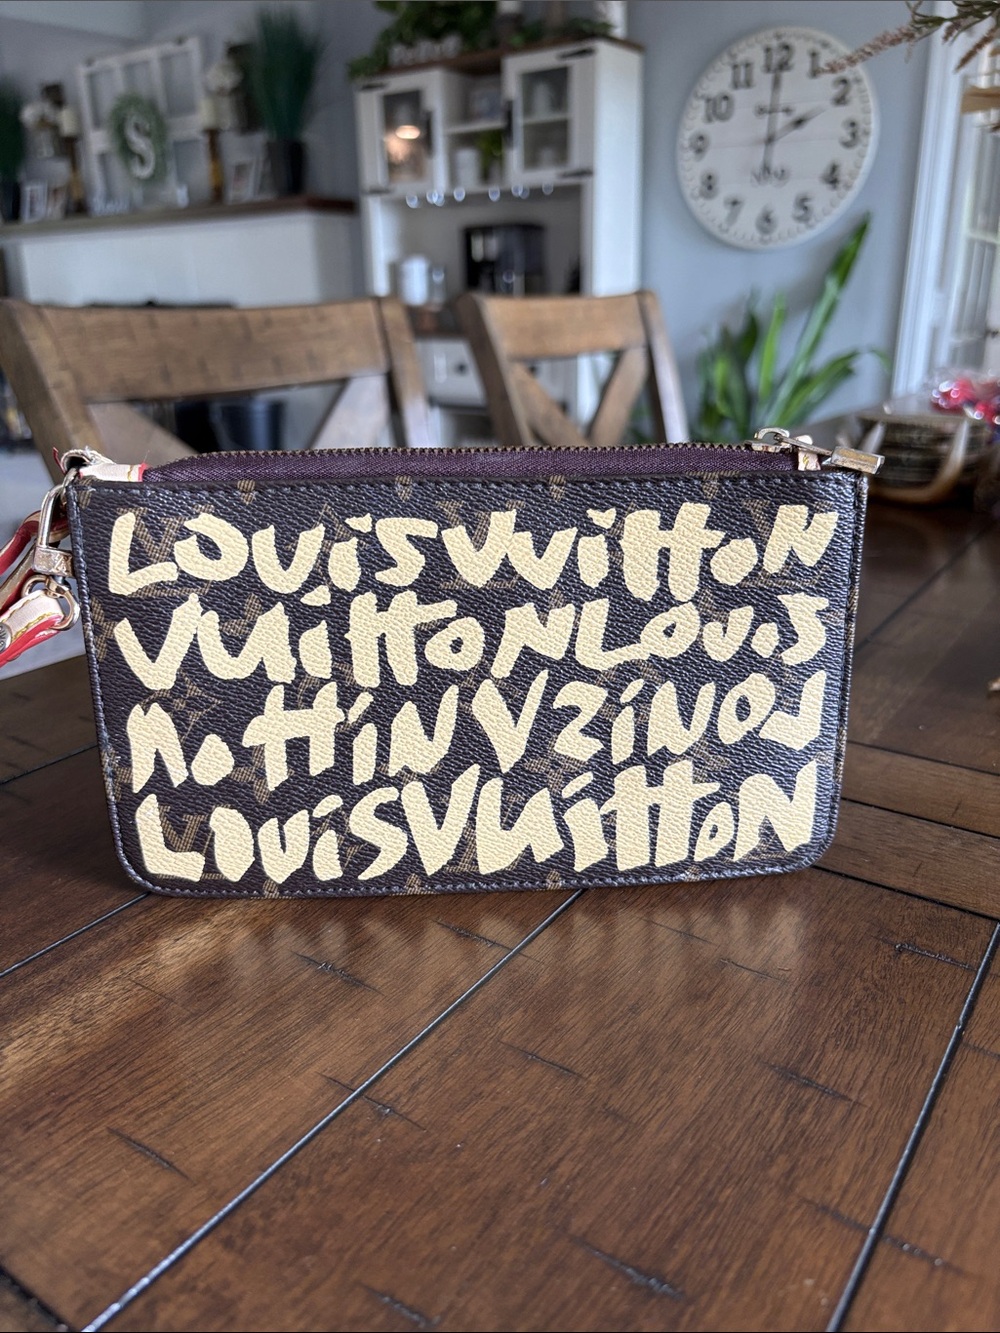 S
11 12 1
10 2
9 3
8 4
7 6 5
LOUiSVUiTToN
VUiTToNLOUiS
LOUiSVUiTToN